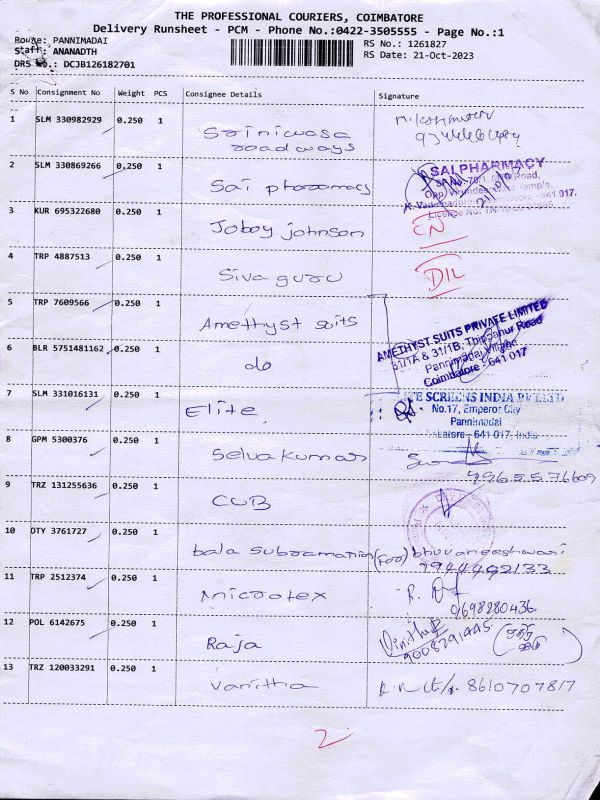 THE PROFESSIONAL COURIERS, COIMBATORE
Delivery Runsheet - PCM - Phone No.:0422-3505555 - Page No.:1
Route: PANNIMADAI
Staff: ANANADTH
DRS No.: DCJB126182701
RS No.: 1261827
RS Date: 21-Oct-2023
S No Consignment No Weight PCS Consignee Details Signature
1 SLM 330982929 0.250 1 Srinivasa
roadways
2 SLM 330869266 0.250 1 Sai pharamacy
SAI PHARMACY
3 KUR 695322680 0.250 1 Joboy johnson CN
4 TRP 4887513 0.250 1 Siva guru D/L
5 TRP 7609566 0.250 1 Amethyst suits
AMETHYST SUITS PRIVATE LIMITED
31/1A & 31/1B, Thippanur Road
Pannimadai Village
Coimbatore - 641 017
6 BLR 5751481162 0.250 1 do
7 SLM 331016131 0.250 1 Elite
SCREENS INDIA PVT LTD
No.17, Emperor City
Pannimadai
641 017, India
8 GPM 5300376 0.250 1 Selva kumar
9965576609
9 TRZ 131255636 0.250 1 CUB
10 OTY 3761727 0.250 1 bala subramation (For) bhuvaneeshwari
9944492133
11 TRP 2512374 0.250 1 Microtex
9698280436
12 POL 6142675 0.250 1 Raja Vinitha
9008291445
13 TRZ 120033291 0.250 1 Vanitha 8610707817
2